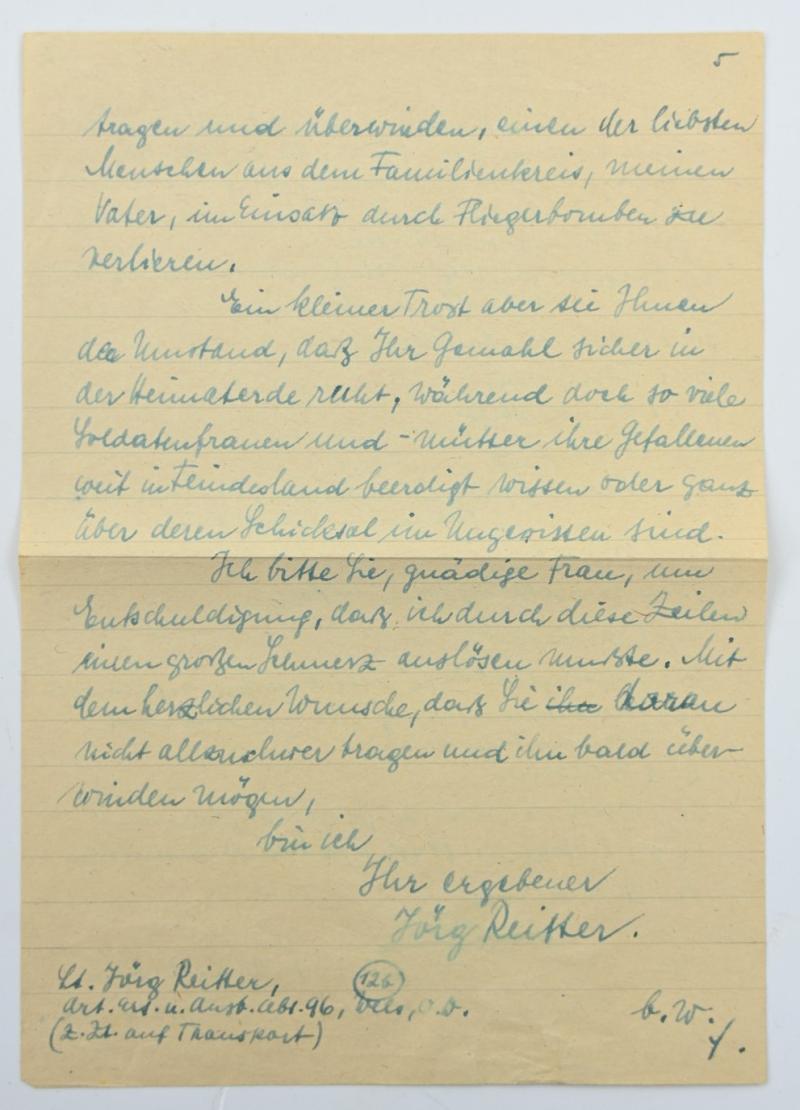 5
tragen und überwinden, einen der liebsten
Menschen aus dem Familienkreis, meinen
Vater, im Einsatz durch Fliegerbomben zu
verlieren.
Ein kleiner Trost aber sei Ihnen
der Umstand, daß Ihr Gemahl sicher in
der Heimaterde ruht, während doch so viele
Soldatenfrauen und -mütter ihre Gefallenen
weit in Feindesland beerdigt wissen oder ganz
über deren Schicksal im Ungewissen sind.
Ich bitte Sie, gnädige Frau, um
Entschuldigung, daß ich durch diese Zeilen
einen großen Schmerz auslösen mußte. Mit
dem herzlichen Wunsche, daß Sie ihn daran
nicht allzuschwer tragen und ihn bald über-
winden mögen,
bin ich
Ihr ergebener
Jörg Reitter.
Lt. Jörg Reitter, (12b)
Art. Ers. u. Ausb. Abt. 96, Wels, O.D.
(z. Zt. auf Transport)
b. w.
/.